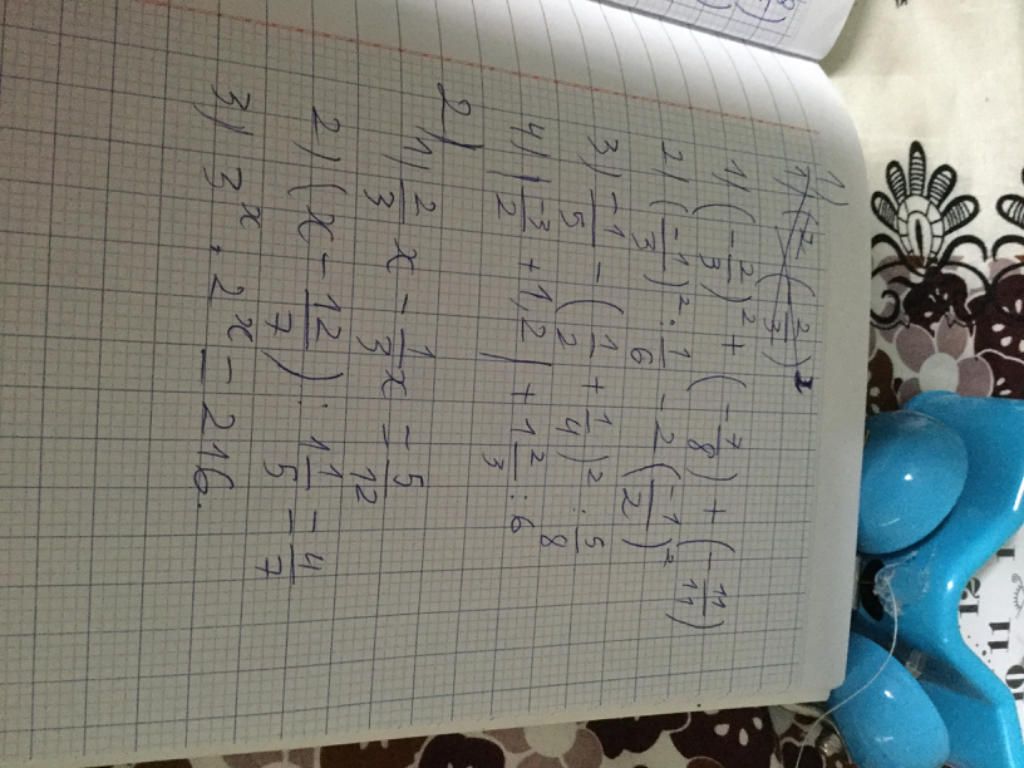 1)
1) (-2/3)² + (-7/8) + (-11/11)
2) (-1/3)² : 1/6 - 2(-1/2)²
3) -1/5 - (1/2 + 1/4)² : 5/8
4) |-3/2 + 1,2| + 1 2/3 : 6
2)
1) 2/3 x - 1/3 x = 5/12
2) (x - 12/7) : 1 1/5 = 4/7
3) 3ˣ · 2ˣ = 216.
12
11
10